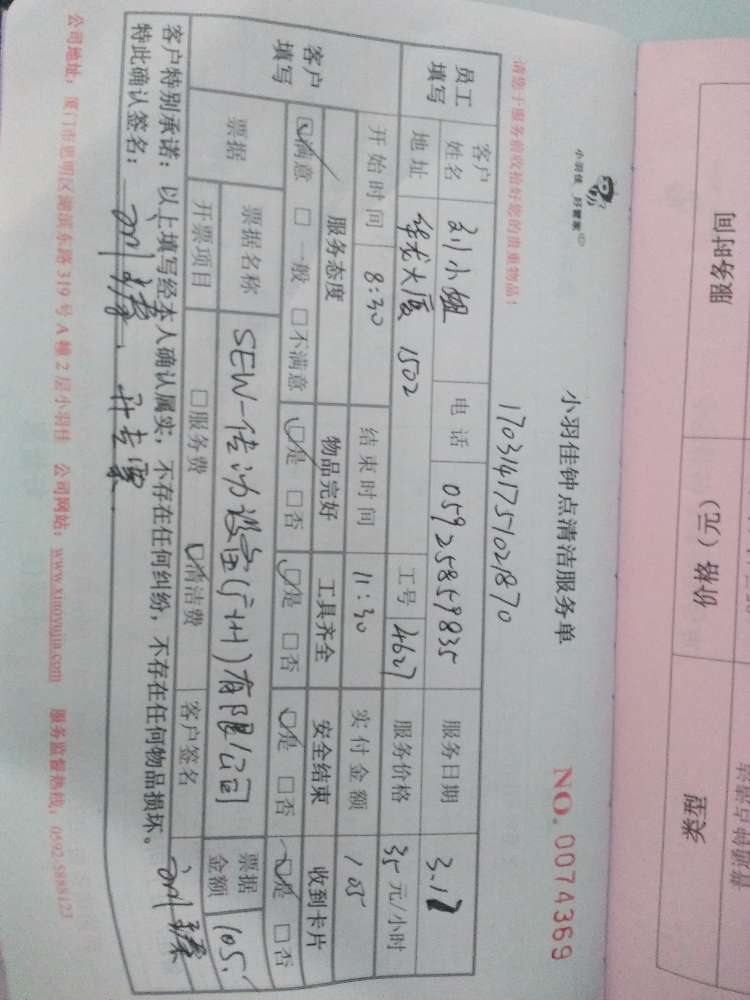 小羽佳 好管家
小羽佳钟点清洁服务单
NO. 0074369
请您于服务前收拾好您的贵重物品！
17031417511021870
员工填写 客户姓名 刘小姐 电话 059258598​35 服务日期 3.17
地址 华龙大厦 1502 工号 4627 服务价格 35元/小时
客户填写 开始时间 8:30 结束时间 11:30 实付金额 105
服务态度 物品完好 工具齐全 安全结束 收到卡片
☑满意 □一般 □不满意 ☑是 □否 ☑是 □否 ☑是 □否 ☑是 □否
票据 票据名称 SEW-传动设备(广州)有限公司 票据金额 105.
开票项目 □服务费 ☑清洁费 客户签名
客户特别承诺：以上填写经本人确认属实，不存在任何纠纷，不存在任何物品损坏。
特此确认签名：
公司地址：厦门市思明区湖滨东路319号A幢2层小羽佳 公司网站：www.xiaoyujia.com 服务监督热线：0592-5888123
服务时间 价格（元） 类型
普通钟点清洁